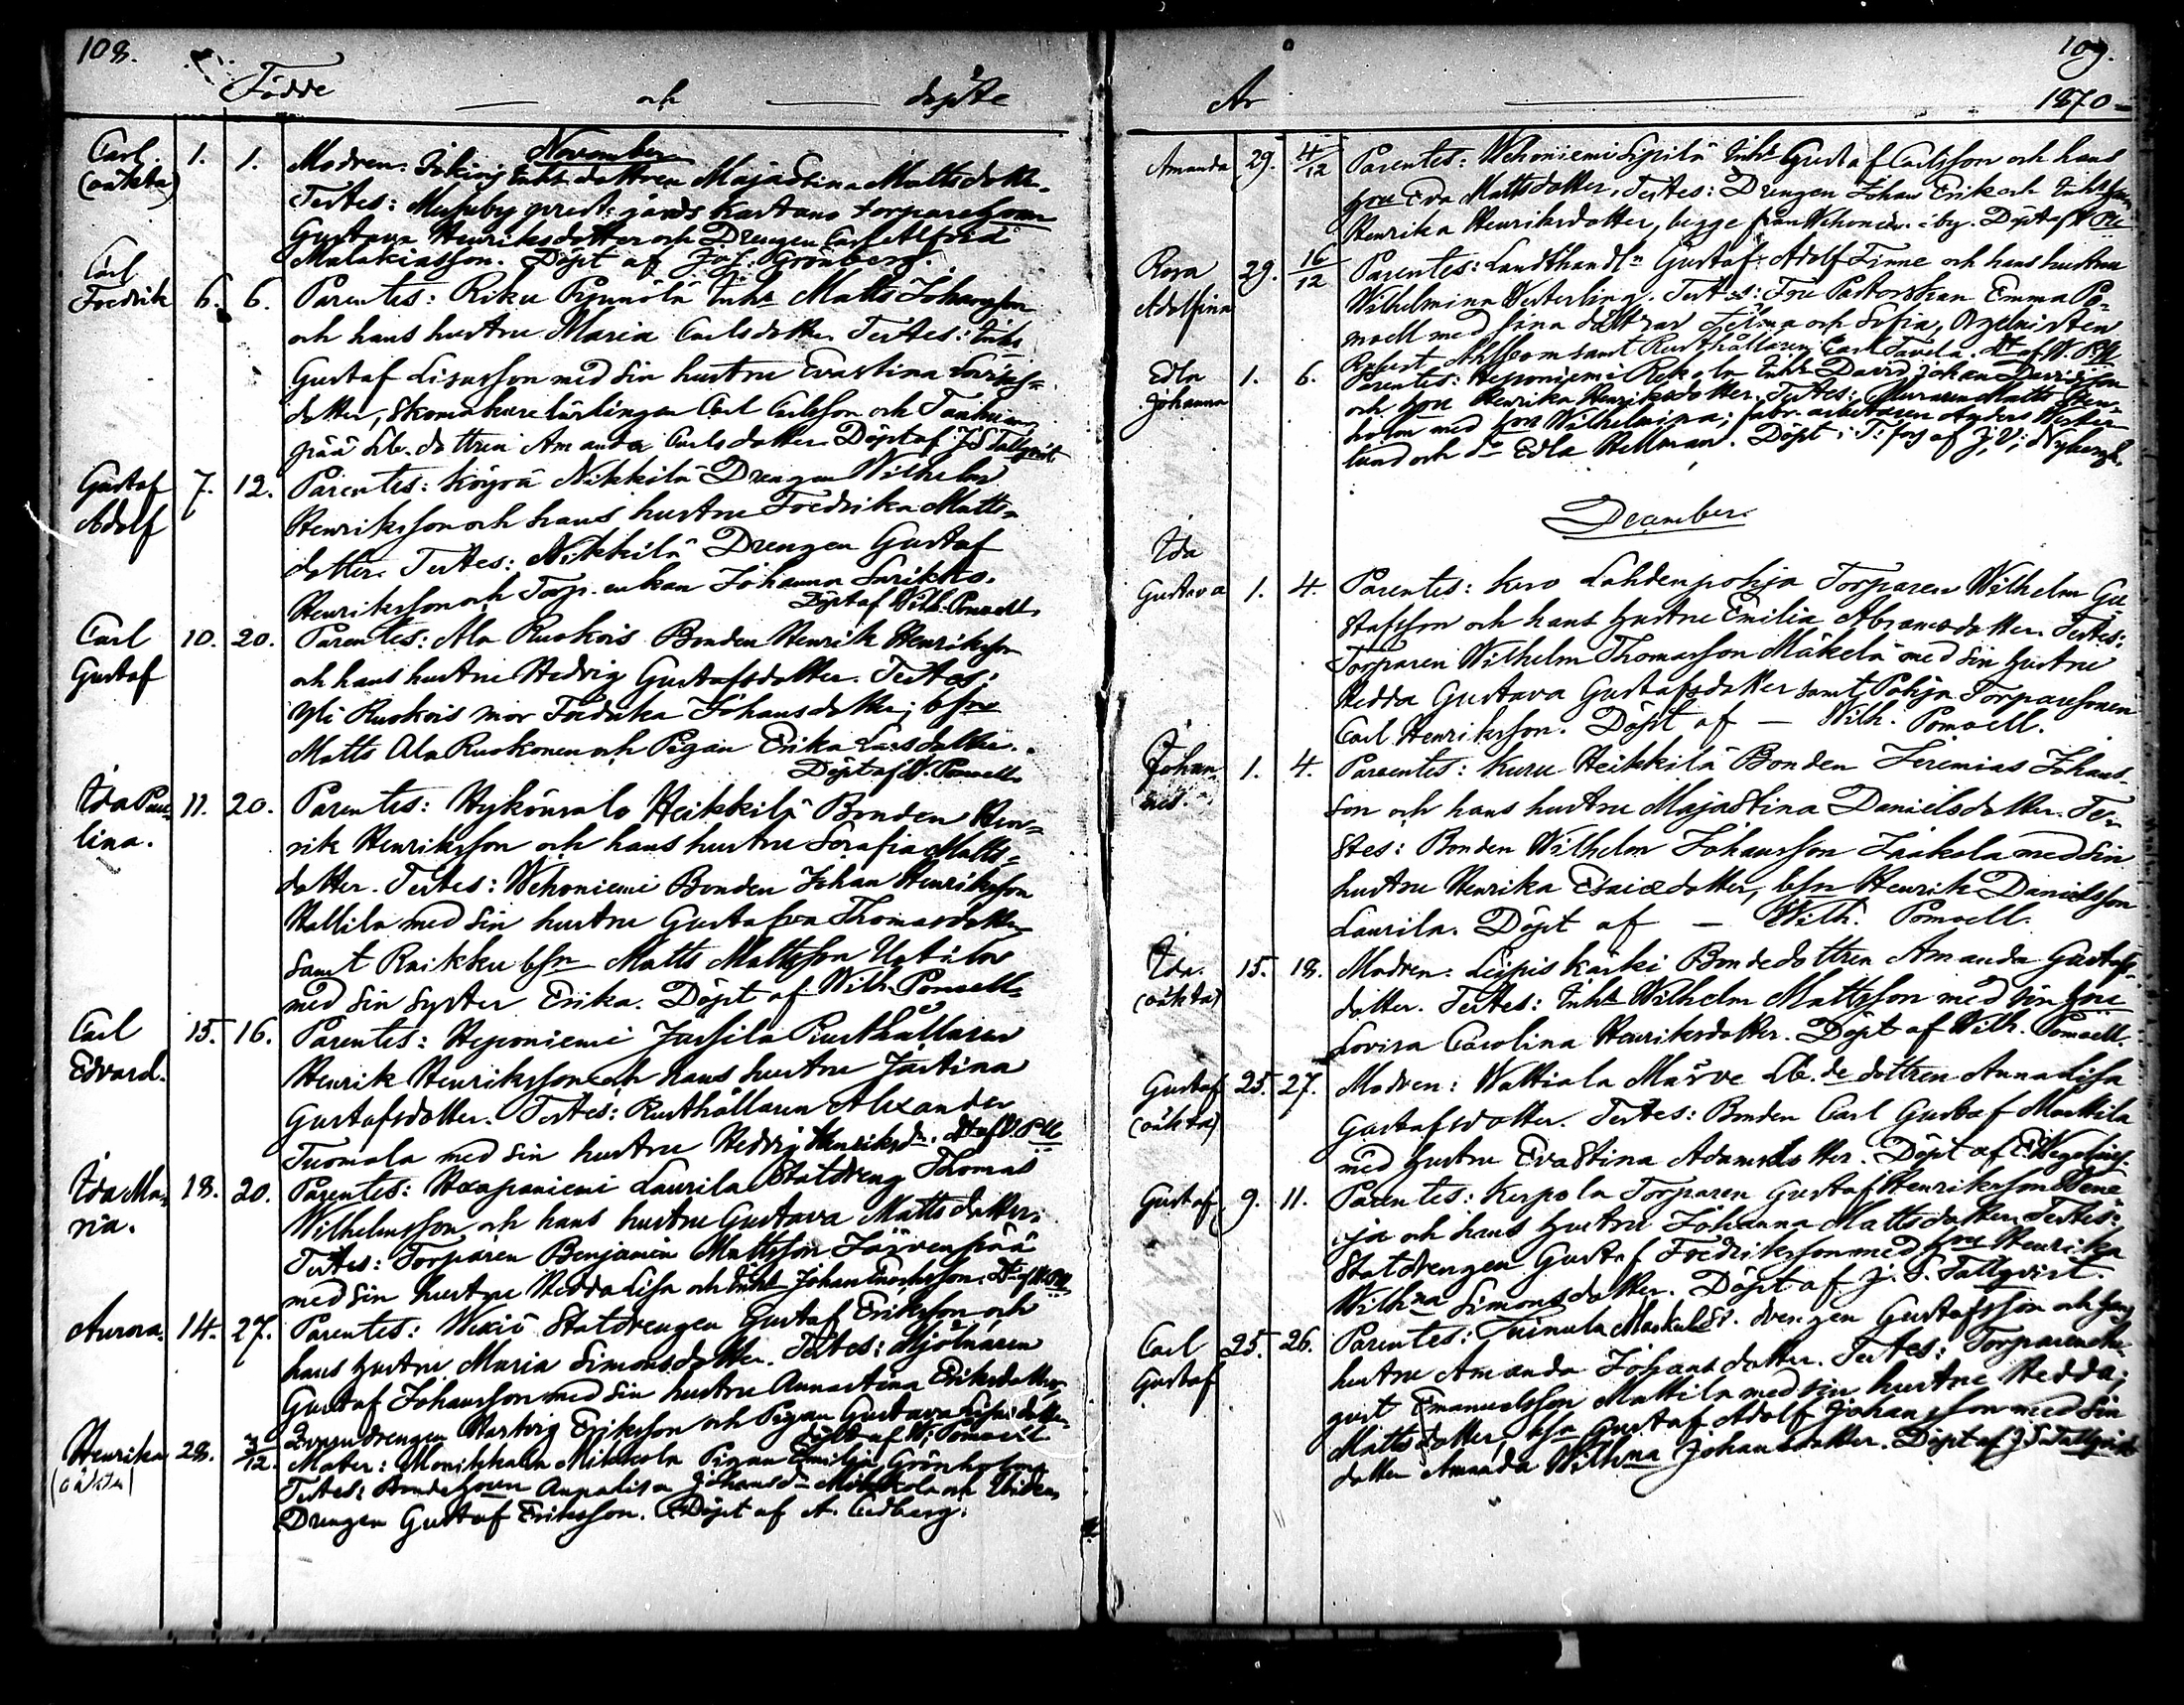 108.
Födde och döpte
November
Carl. (oäkta) 1. 1. Modren: Jokinj Inhs dottren Majastina Mattsdotter.
Testes: Messuby prest-gårds Kartano torparehustrun
Gustava Henriksdotter och Drengen Carl Alfred
Malakiasson. Döpt af Joh. Grönberg.
Carl Fredrik 6. 6. Parentes: Riku Inhs Matts Johansson
och hans hustru Maria Carlsdotter. Testes: Inhs
Gustaf Lisasson med sin hustru Evastina
dotter, Skomakarelärlingen Carl Carlsson och
pää dottren Amanda Carlsdotter. Döpt af J S Tallqvist
Gustaf Adolf 7. 12. Parentes: Nikkilä Drengen Wilhelm
Henriksson och hans hustru Fredrika Matts-
dotter. Testes: Nikkilä Drengen Gustaf
Henriksson och Torp. enkan Johanna
Döpt af Wilh. Ponsell.
Carl Gustaf 10. 20. Parentes: Ala Ruokois Bonden Henrik Henriksson
och hans hustru Hedvig Gustafsdotter. Testes:
Yli Ruokois mor Fredrika Johansdotter; bsn
Matts Ala Ruokonen och Pigan Erika Larsdotter.
Döpt af W. Ponsell
Ida Pau-
lina. 11. 20. Parentes: Hykönsalo Heikkilä Bonden Hen-
rik Henriksson och hans hustru Serafia Matts-
dotter. Testes: Wehoniemi Bonden Johan Henriksson
Hallila med sin hustru Gustafva Thomasdotter
samt Raikku bsn Matts Mattsson Uotila
med sin syster Erika. Döpt af Wilh. Ponsell
Carl Edvard. 15. 16. Parentes: Heponiemi Jussila Rusthållaren
Henrik Henriksson och hans hustru Justina
Gustafsdotter. Testes: Rusthållaren Alexander
Tuomola med sin hustru Hedvig Henriksdr. Dt af W. P-ll
Ida Ma-
ria. 18. 20. Parentes: Haapaniemi Laurila Statdreng Thomas
Wilhelmsson och hans hustru Gustava Mattsdotter.
Testes: Torparen Benjamin Mattsson Järvenpää
med sin hustru Hedda Lisa och Inhs Johan Enochsson. Dt af W. P-ll
Aurora. 14. 27. Parentes: Wexiö Statdrengen Gustaf Eriksson och
hans hustru Maria Simonsdotter. Testes: Mjölnaren
Gustaf Johansson med sin hustru Annastina Eriksdotter,
drengen Hartvig Eriksson och Pigan Gustava
Döpt af W. Ponsell
Henrika (oäkta) 28. 3/12. Mater: Monikkala Mikkola Pigan Emilia Grönholm
Testes: Annalisa Johansdr Mikkola och
Drengen Gustaf Eriksson. Döpt af A. Cedberg.
109.
År 1870
Amanda 29. 4/12 Parentes: Wehoniemi Sipilä Inhs Gustaf Carlsson och hans
hru Eva Mattsdotter. Testes: Drengen Johan Erik och Inhs
Henrika Henriksdotter, begge från Wehoniemi by. Döpt af W P-ll
Rosa Adolfina 29. 16/12 Parentes: Landthandln Gustaf Adolf Finne och hans hustru
Wilhelmina Westerling. Testes: Fru Pastorskan Emma Po-
nsell med sina döttrar Selma och Sofia, Orgelnisten
Robert samt Rusthållaren Carl Tavela. Dt af W. P-ll
Edla Johanna 1. 6. Parentes: Heponiemi Inhs David Johan Davidsson
och hru Henrika Henriksdotter. Testes: Muraren Matts Sten-
holm med hru Wilhelmina; fabr. arbetaren Anders Wester-
lund och Edla Hellman. Döpt i T:fors af J. V. Nybergh.
December.
Ida Gustava 1. 4. Parentes: Kuro Lahdenpohja Torparen Wilhelm Gu-
stafsson och hans hustru Emilia Abramsdotter. Testes:
Torparen Wilhelm Thomasson Mäkelä med sin hustru
Hedda Gustava Gustafsdotter samt Pohja Torparesonen
Carl Henriksson. Döpt af — Wilh. Ponsell.
Johan-
nes. 1. 4. Parentes: Kuru Heikkilä Bonden Jeremias Johans-
son och hans hustru Majastina Danielsdotter. Te-
stes: Bonden Wilhelm Johansson Jaakola med sin
hustru Henrika Esaiædotter, bsn Henrik Danielsson
Laurila. Döpt af — Wilh. Ponsell.
Ida. (oäkta) 15. 18. Modren: Leipis Kärki Bondedottren Amanda Gustafs-
dotter. Testes: Inhs Wilhelm Mattsson med sin hru
Lovisa Carolina Henriksdotter. Döpt af Wilh. Ponsell.
Gustaf (oäkta) 25. 27. Modren: Wattiala dottren Anna Lisa
Gustafsdotter. Testes: Bonden Carl Gustaf Marttila
med hustru Evastina Adamsdotter. Döpt af E. Wegelius.
Gustaf 9. 11. Parentes: Kerpola Torparen Gustaf Henriksson
oja och hans hustru Johanna Mattsdotter. Testes:
Statdrengen Gustaf Fredriksson med hru Henrika
Wilhna Simonsdotter. Döpt af J. S. Tallqvist.
Carl Gustaf 25. 26. Parentes: St. drengen Gustafsson och hans
hustru Amanda Johansdotter. Testes: Torparen Au-
gust Emanuelsson Mattila med sin hustru Hedda
Mattsdotter, bsn Gustaf Adolf Johansson med sin
Amanda Wilhna Johansdotter. Döpt af J S Tallqvist